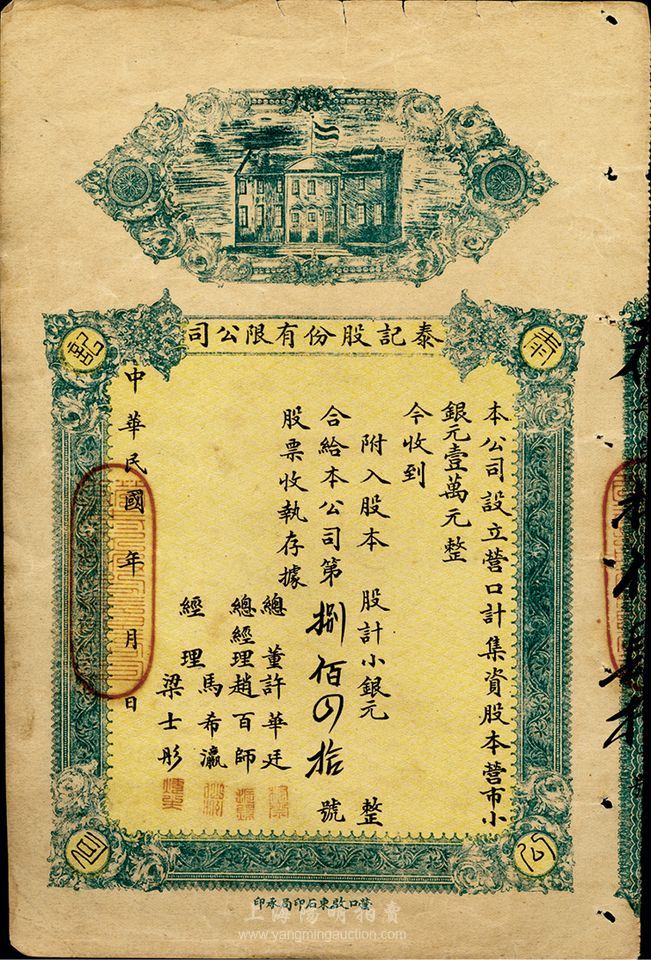 泰記股份有限公司
泰
記
公
司
本公司設立營口計集資股本營市小
銀元壹萬元整
今收到
附入股本　股計小銀元　整
合給本公司第捌佰四拾號
股票收執存據
總董許華廷
總經理趙百師
經理馬希瀛
梁士彤
中華民國　年　月　日
營口啟東石印局承印
上海陽明拍賣
www.yangmingauction.com